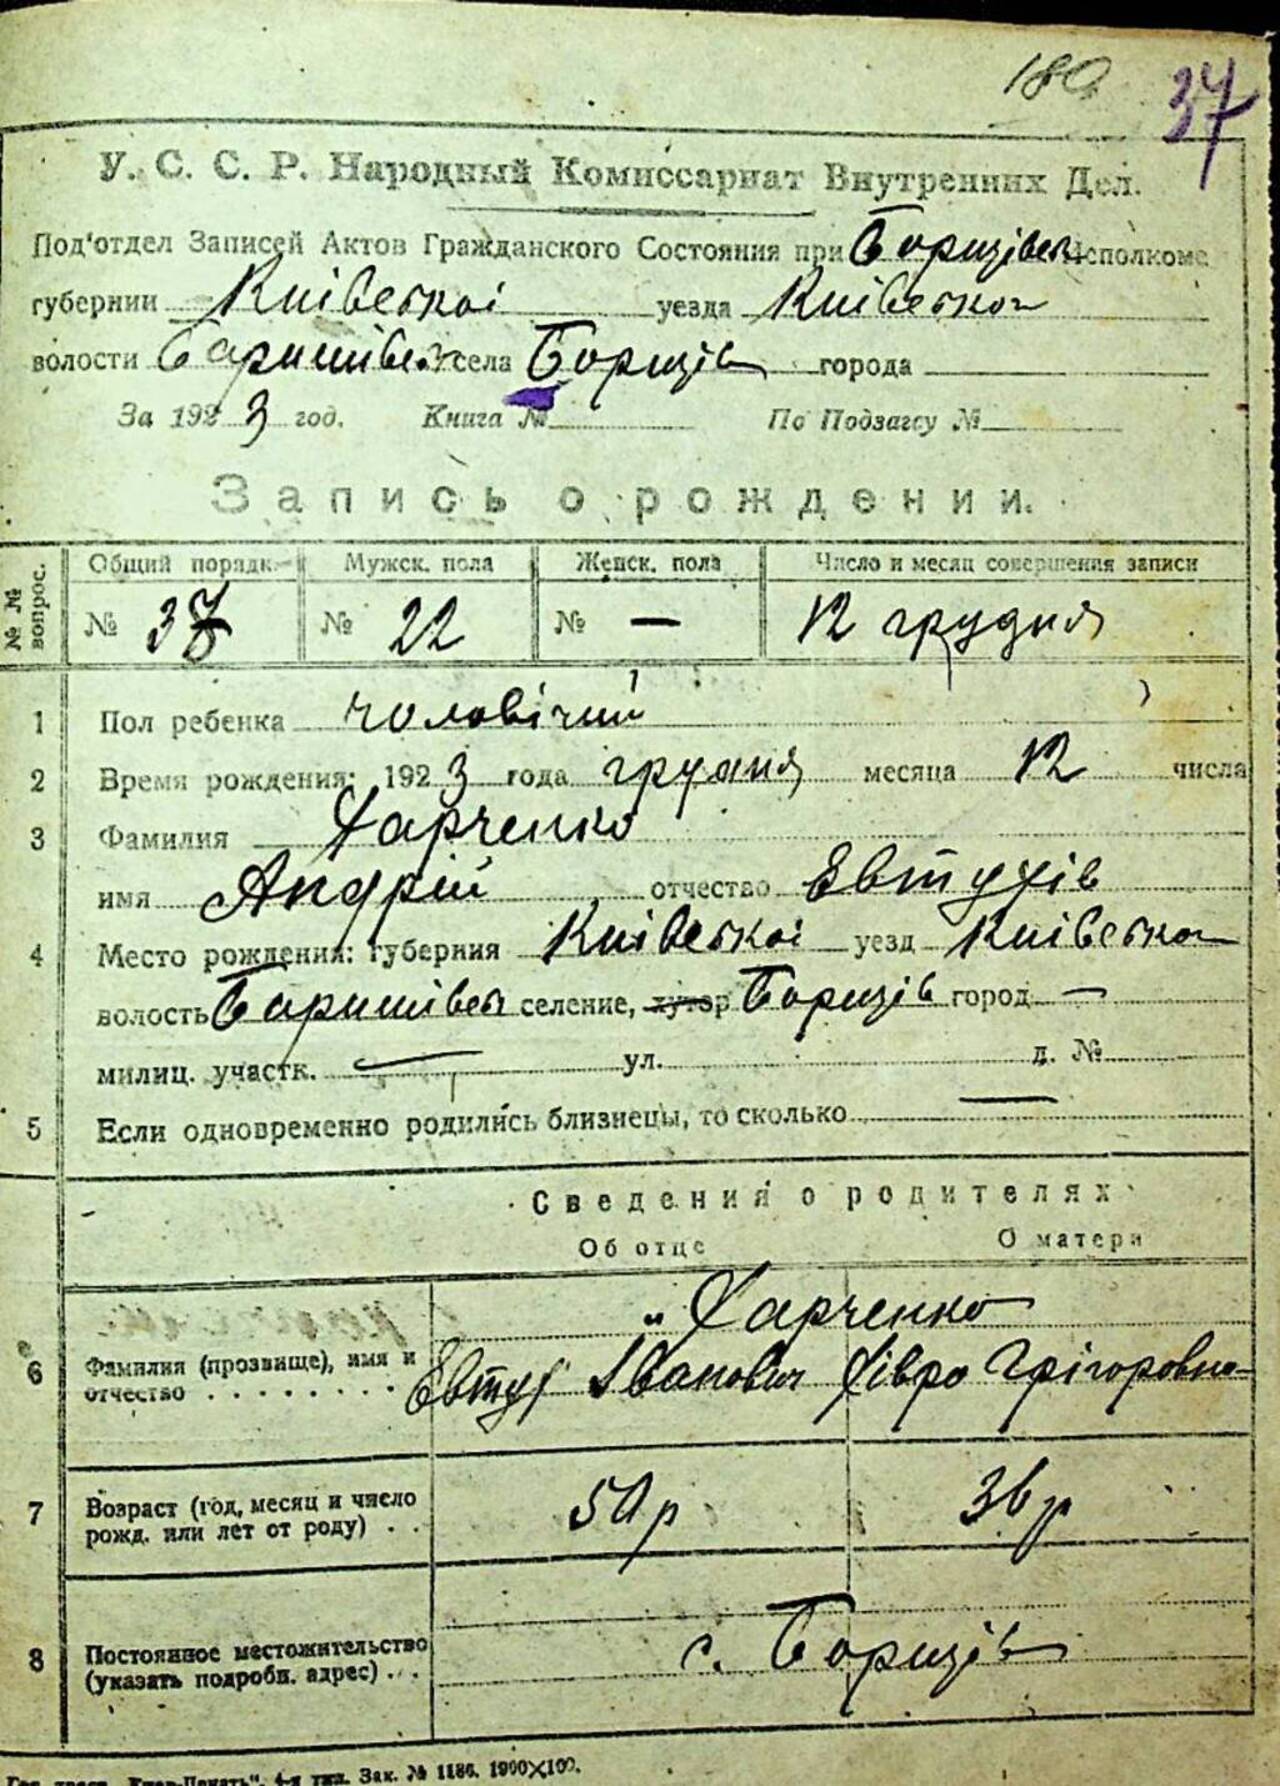 189 37
У. С. С. Р. Народный Комиссариат Внутренних Дел.
Под'отдел Записей Актов Гражданского Состояния при Борщівськ Исполкоме
губернии Київської уезда Київсько
волости Баришівськ села Борщів города
За 1923 год. Книга № По Подзагсу №
Запись о рождении.
№ № вопрос. Общий порядк. Мужск. пола Женск. пола Число и месяц совершения записи
№ 37 № 22 № — 12 грудня
1 Пол ребенка чоловічий
2 Время рождения: 1923 года грудня месяца 12 числа
3 Фамилия Харченко
имя Андрій отчество Евтухів
4 Место рождения: губерния Київської уезд Київсько
волость Баришівськ селение, хутор Борщів город —
милиц. участк. — ул. д. №
5 Если одновременно родились близнецы, то сколько —
Сведения о родителях
Об отце О матери
„ Харченко
6 Фамилия (прозвище), имя и отчество . . . . . . . . Евтух Іванович Хівро Грігоровна
7 Возраст (год, месяц и число рожд. или лет от роду) . . 50 р 36 р
8 Постоянное местожительство (указать подробн. адрес) . . . с. Борщів
4-я тип. Зак. № 1186. 1900×100.